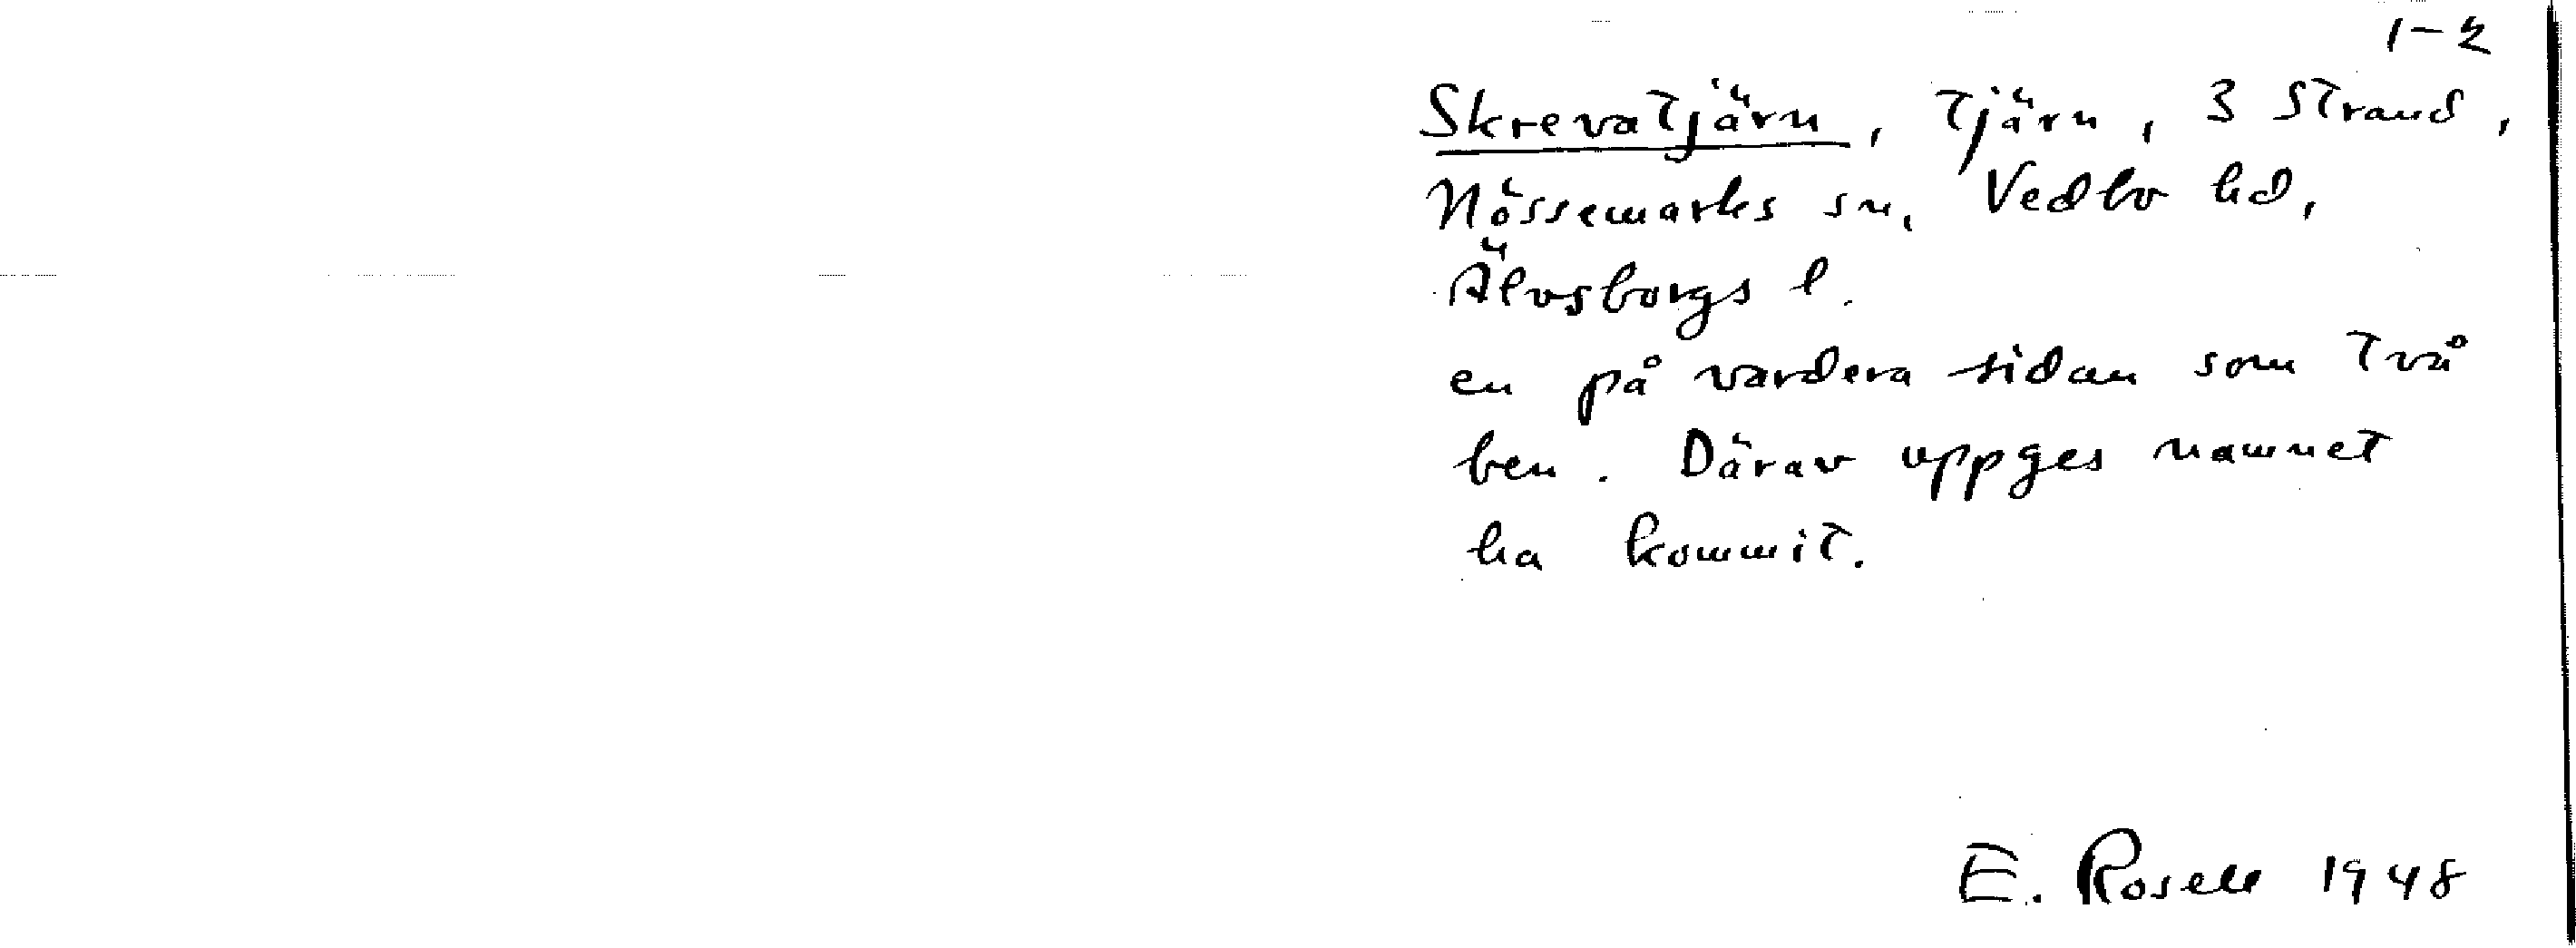 1-2
Skrevatjärn, tjärn, 3 Strand,
Nössemarks sn, Vedbo hd,
Älvsborgs l.
en på vardera sidan som två
ben. Därav uppges namnet
ha kommit.
E. Rosell 1948